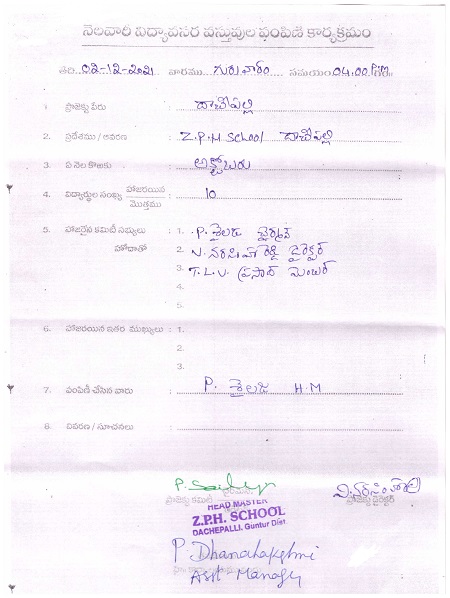 నెలవారి విద్యావసర వస్తువుల పంపిణి కార్యక్రమం
తేది: 02-12-2021 వారము గురువారం సమయం: 04.00 Pm
1. ప్రాజెక్టు పేరు : దాచేపల్లి
2. ప్రదేశము / ఆవరణ : Z.P.H SCHOOL దాచేపల్లి
3. ఏ నెల కొఱకు : అక్టోబరు
4. విద్యార్థుల సంఖ్య హాజరయిన / మొత్తము : 10
5. హాజరైన కమిటీ సభ్యులు : 1. P. శైలజ చైర్మన్
హోదాతో 2. V. నరసింహా రెడ్డి డైరెక్టర్
3. T.L.V. ప్రసాద్ మెంబర్
4.
5.
6. హాజరయిన ఇతర ముఖ్యులు : 1.
2.
3.
7. పంపిణీ చేసిన వారు : P. శైలజ H.M
8. వివరణ / సూచనలు :
చైర్మన్
ప్రాజెక్టు కమిటీ ప్రాజెక్టు డైరెక్టర్
HEAD MASTER
Z.P.H. SCHOOL
DACHEPALLI, Guntur Dist.
P. Dhanalakshmi
Asst Manager